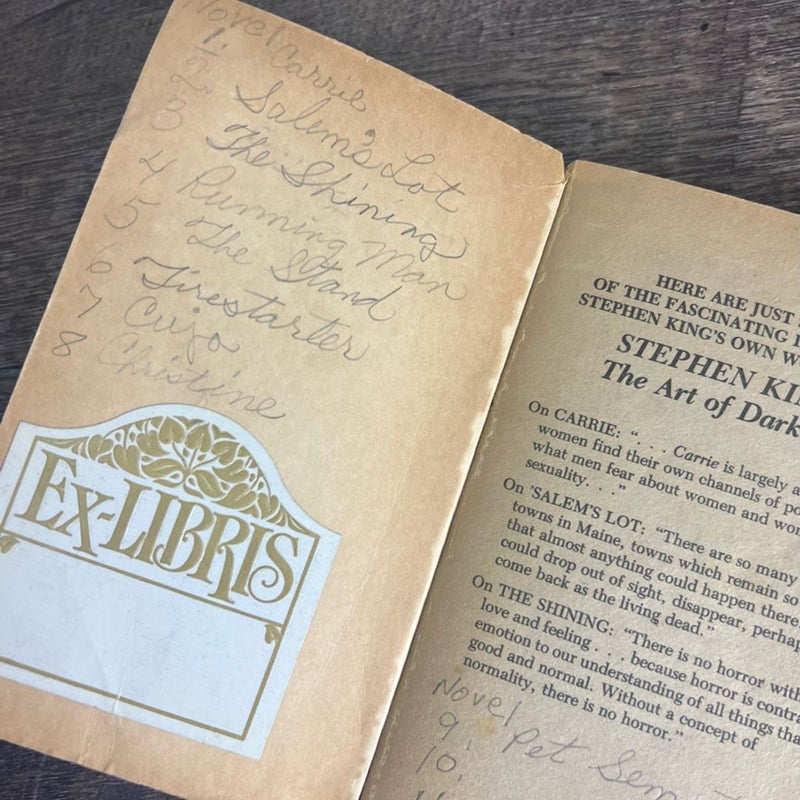 Novel
1. Carrie
2. Salem's Lot
3 The Shining
4 Running Man
5 The Stand
6 Firestarter
7 Cujo
8 Christine
EX-LIBRIS
HERE ARE JUST
OF THE FASCINATING
STEPHEN KING'S OWN
STEPHEN
The Art of
On CARRIE: ". . . Carrie is largely
women find their own channels of
what men fear about women and
sexuality. . ."
On 'SALEM'S LOT: "There are so many
towns in Maine, towns which remain so
that almost anything could happen there.
could drop out of sight, disappear,
come back as the living dead."
On THE SHINING: "There is no horror
love and feeling . . . because horror is
emotion to our understanding of all things
good and normal. Without a concept of
normality, there is no horror."
Novel
9. Pet
10.